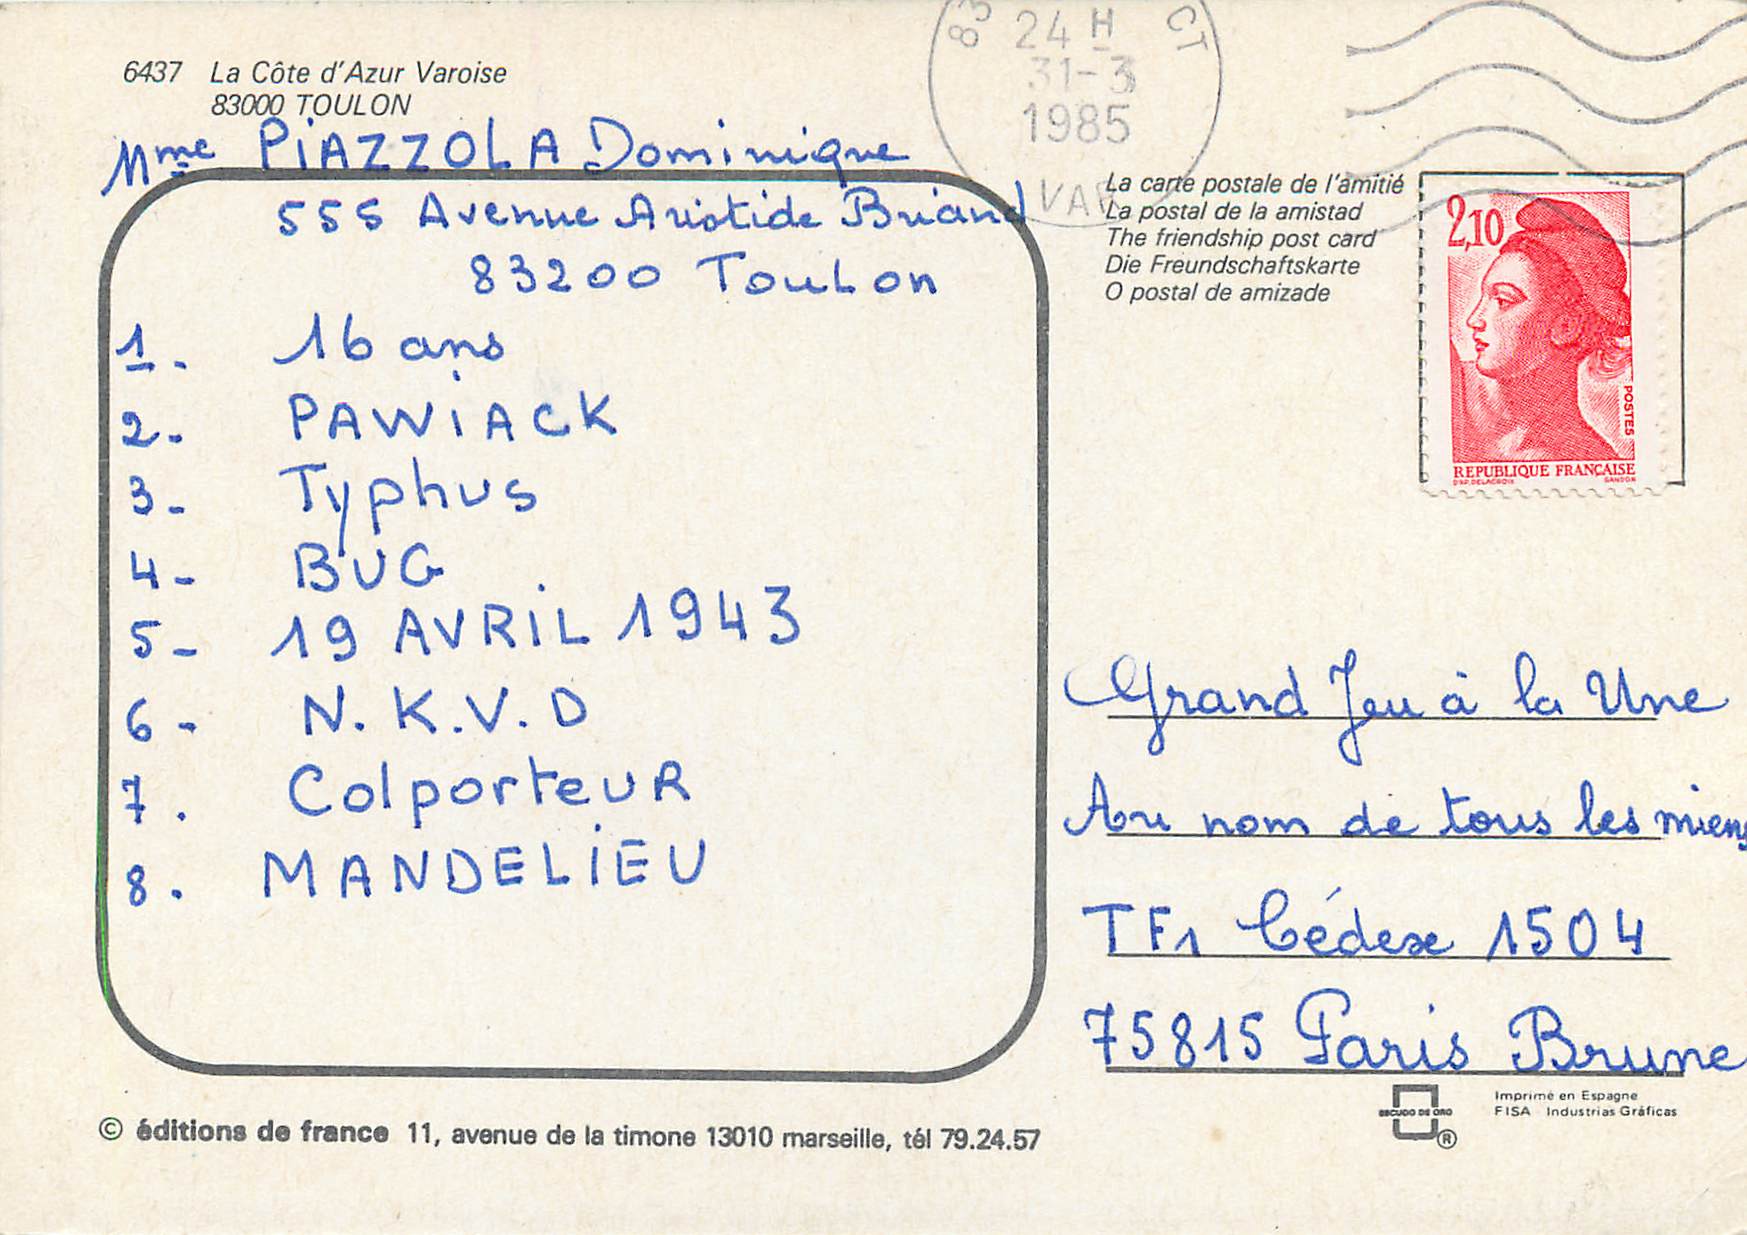 6437 La Côte d'Azur Varoise
83000 TOULON
Mme PIAZZOLA Dominique
555 Avenue Aristide Briand
83200 Toulon
1. 16 ans
2- PAWIACK
3- Typhus
4- BUG
5- 19 AVRIL 1943
6- N.K.V.D
7. Colporteur
8. MANDELIEU
© éditions de france 11, avenue de la timone 13010 marseille, tél 79.24.57
83 CT
24 H
31-3
1985
VAR
La carte postale de l'amitié
La postal de la amistad
The friendship post card
Die Freundschaftskarte
O postal de amizade
2,10
POSTES
REPUBLIQUE FRANÇAISE
D'AP. DELACROIX GANDON
Grand Jeu à la Une
Au nom de tous les miens
TF1 Cédex 1504
75815 Paris Brune
ESCUDO DE ORO
®
Imprimé en Espagne
FISA Industrias Gráficas